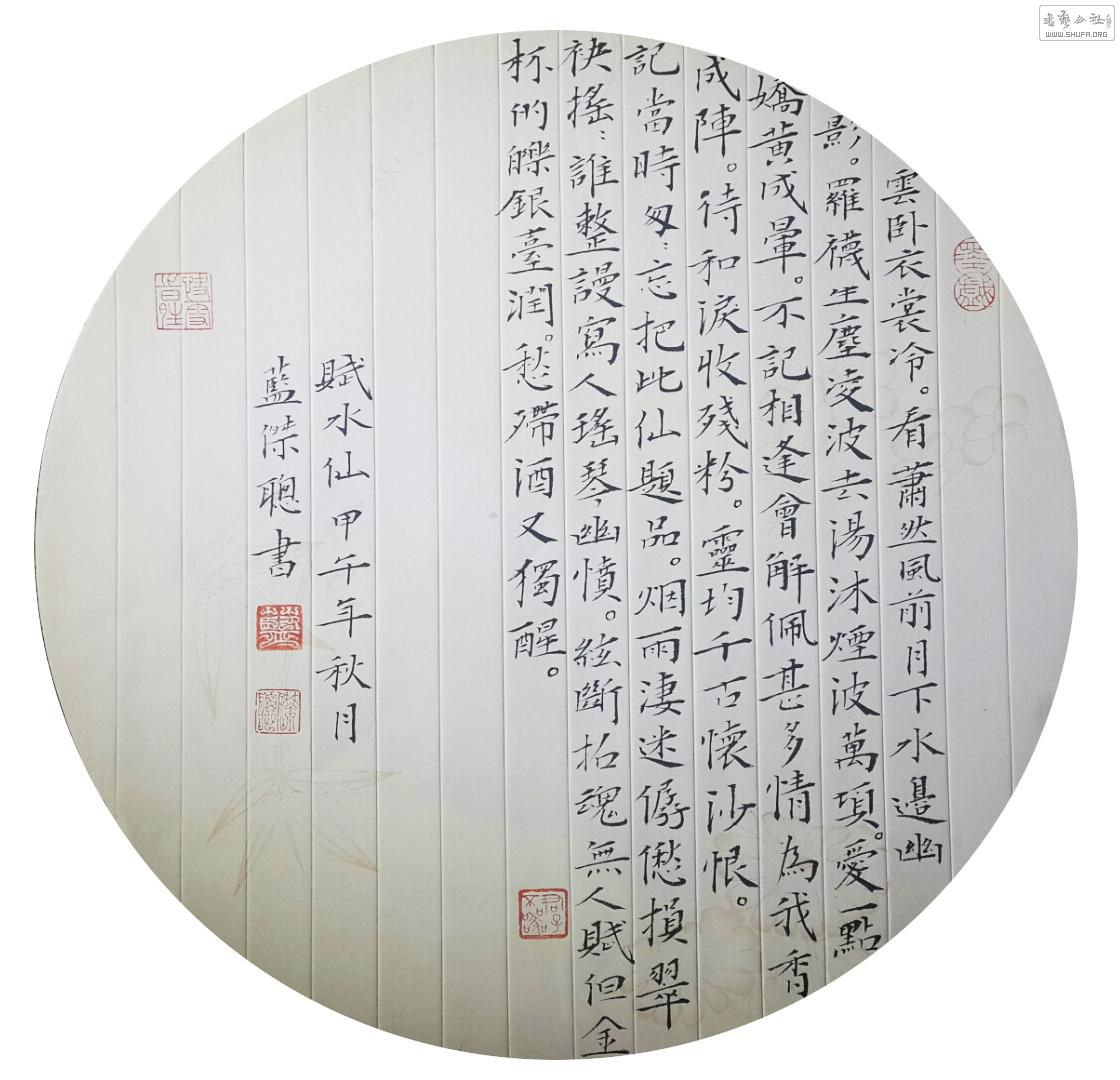 雲卧衣裳冷。看蕭然風前月下水邉幽
影。羅襪生塵凌波去湯沐煙波萬頃。愛一點
嬌黄成暈。不記相逢曾解佩甚多情為我香
成陣。待和淚收殘粉。靈均千古懷沙恨。
記當時匆〻忘把此仙題品。烟雨淒迷僝僽損翠
袂搖〻誰整謾寫入瑤琴幽憤。絃斷招魂無人賦但金
杯的皪銀臺潤。愁殢酒又獨醒。
賦水仙甲午年秋月
藍傑聰書
君子不器
書藝公社
WWW.SHUFA.ORG